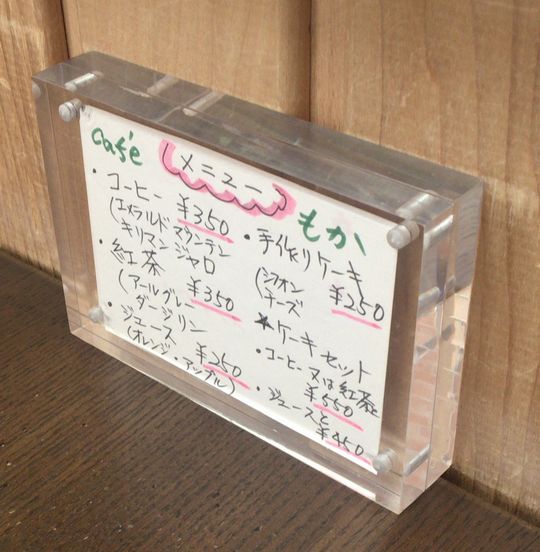 café メニュー もか
・コーヒー ¥350
(エメラルドマウンテン
キリマンジャロ
・紅茶 ¥350
(アールグレー
ダージリン
・ジュース ¥250
(オレンジ・アップル)
・手作りケーキ
(シフォン ¥250
チーズ
★ケーキセット
・コーヒー又は紅茶と
¥550
・ジュースと
¥450